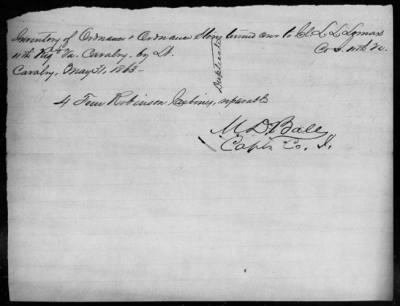 Inventory of Ordnance & Ordnance Stores turned over to Lt. L. L. Lomax
11th Regt Va. Cavalry - by Lt. Co. I. 11th Va.
Cavalry, May 31, 1863 -
Duplicate
4 Four Robinson Carbines, reparable
M D Ball
Capt. Co. I.